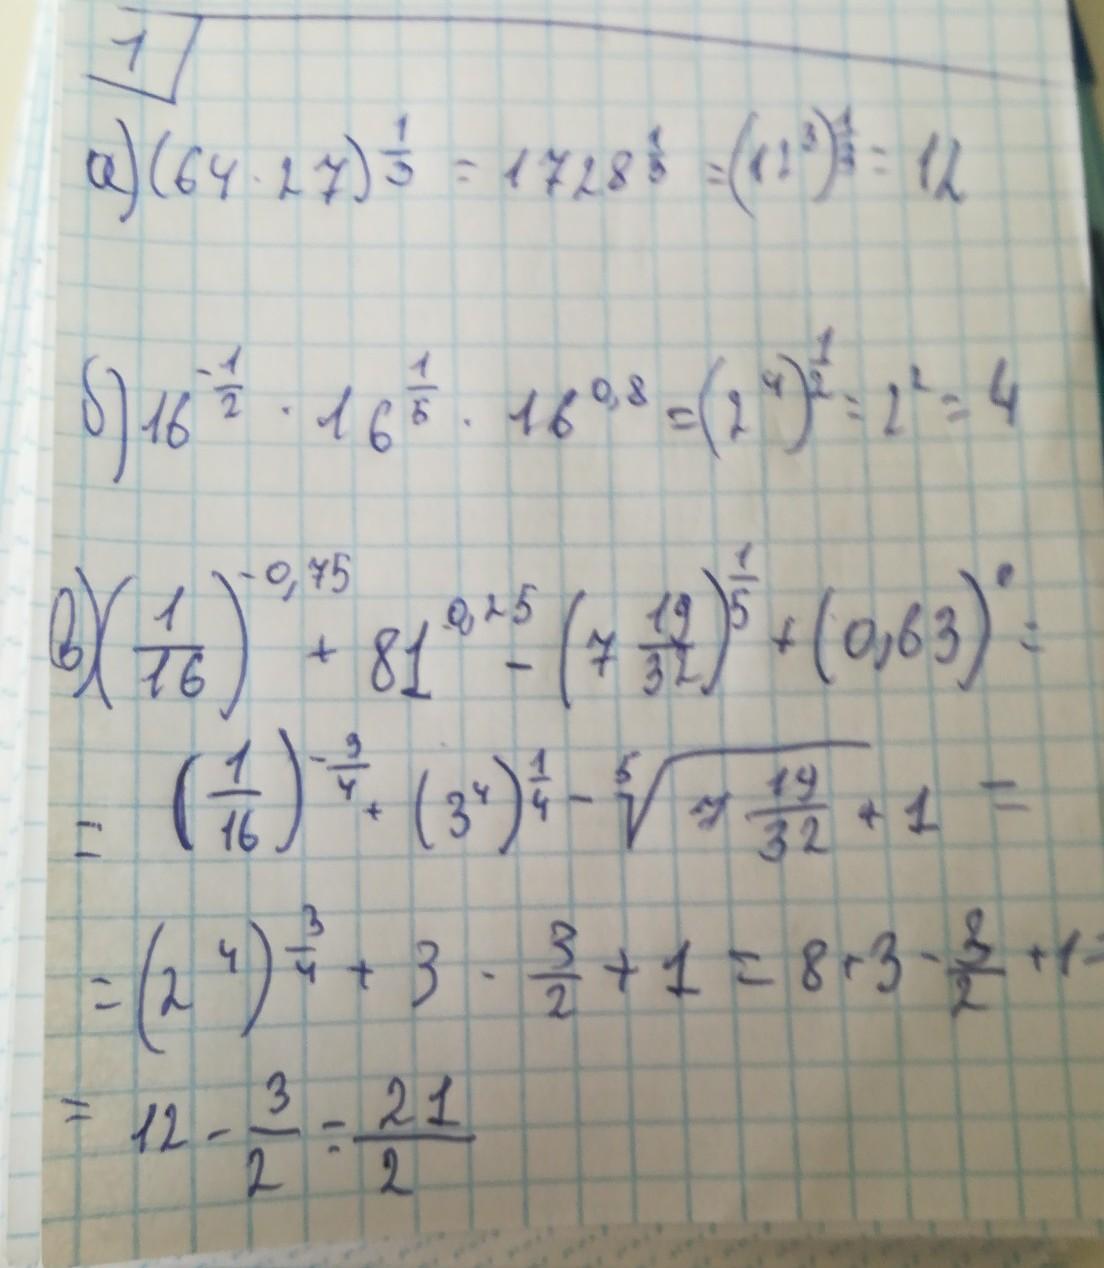 1
а) (64 · 27)^(1/3) = 1728^(1/3) = (12^3)^(1/3) = 12
б) 16^(-1/2) · 16^(1/5) · 16^(0,8) = (2^4)^(1/2) = 2^2 = 4
в) (1/16)^(-0,75) + 81^(0,25) - (7 19/32)^(1/5) + (0,63)^0 =
= (1/16)^(-3/4) + (3^4)^(1/4) - ⁵√(7 19/32) + 1 =
= (2^4)^(3/4) + 3 - 3/2 + 1 = 8 + 3 - 3/2 + 1 =
= 12 - 3/2 = 21/2